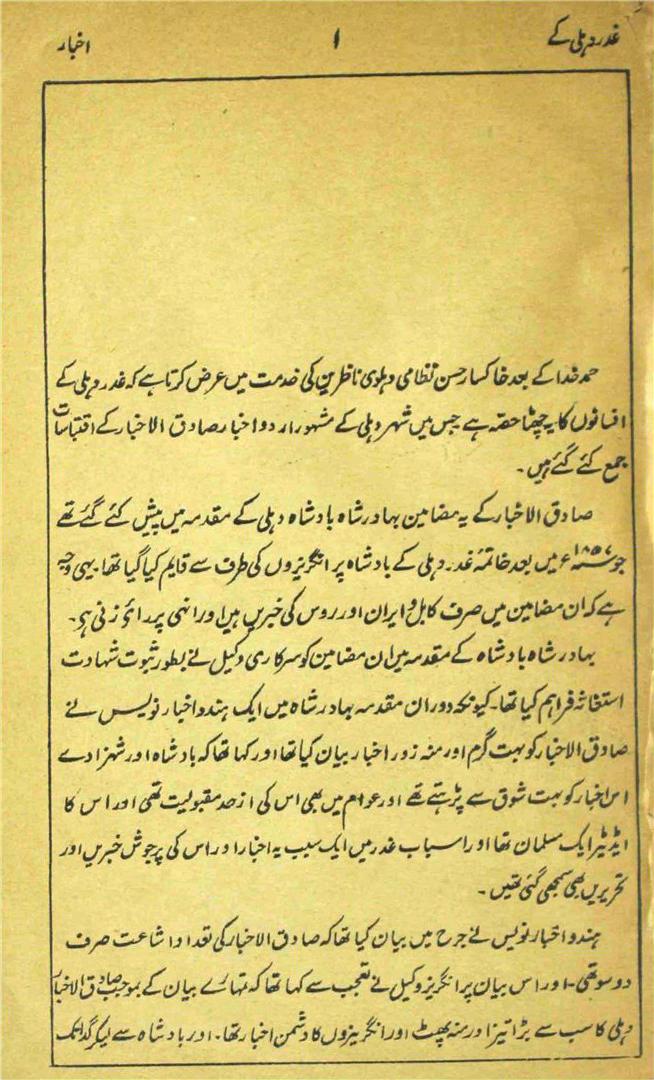 غدر دہلی کے
۱
اخبار
حمد خدا کے بعد خاکسار حسن نظامی دہلوی ناظرین کی خدمت میں عرض کرتا ہے کہ غدر دہلی کے
افسانوں کا یہ چھٹا حصہ ہے جس میں شہر دہلی کے مشہور اردو اخبار صادق الاخبار کے اقتباسات
جمع کئے گئے ہیں۔
صادق الاخبار کے یہ مضامین بہادر شاہ بادشاہ دہلی کے مقدمہ میں پیش کئے گئے تھے
جو ۱۸۵۷ء میں بعد خاتمہ غدر۔ دہلی کے بادشاہ پر انگریزوں کی طرف سے قایم کیا گیا تھا۔ یہی وجہ
ہے کہ ان مضامین میں صرف کابل و ایران اور روس کی خبریں ہیں اور انہی پر رائے زنی ہی۔
بہادر شاہ بادشاہ کے مقدمہ میں ان مضامین کو سرکاری وکیل نے بطور ثبوت شہادت
استغاثہ فراہم کیا تھا۔ کیونکہ دوران مقدمہ بہادر شاہ میں ایک ہندو اخبار نویس نے
صادق الاخبار کو بہت گرم اور منہ زور اخبار بیان کیا تھا اور کہا تھا کہ بادشاہ اور شہزادے
اس اخبار کو بہت شوق سے پڑہتے تھے اور عوام میں بھی اس کی ازحد مقبولیت تھی اور اس کا
ایڈیٹر ایک مسلمان تھا اور اسباب غدر میں ایک سبب یہ اخبار اور اس کی پرجوش خبریں اور
تحریریں بھی سمجھی گئی تھیں۔
ہندو اخبار نویس نے جرح میں بیان کیا تھا کہ صادق الاخبار کی تعداد اشاعت صرف
دو سو تھی۔ اور اس بیان پر انگریز وکیل نے تعجب سے کہا تھا کہ تمہارے بیان کے بموجب صادق الاخبار
دہلی کا سب سے بڑا تیز اور منہ پھٹ اور انگریزوں کا دشمن اخبار تھا۔ اور بادشاہ سے لیکر گدا تک